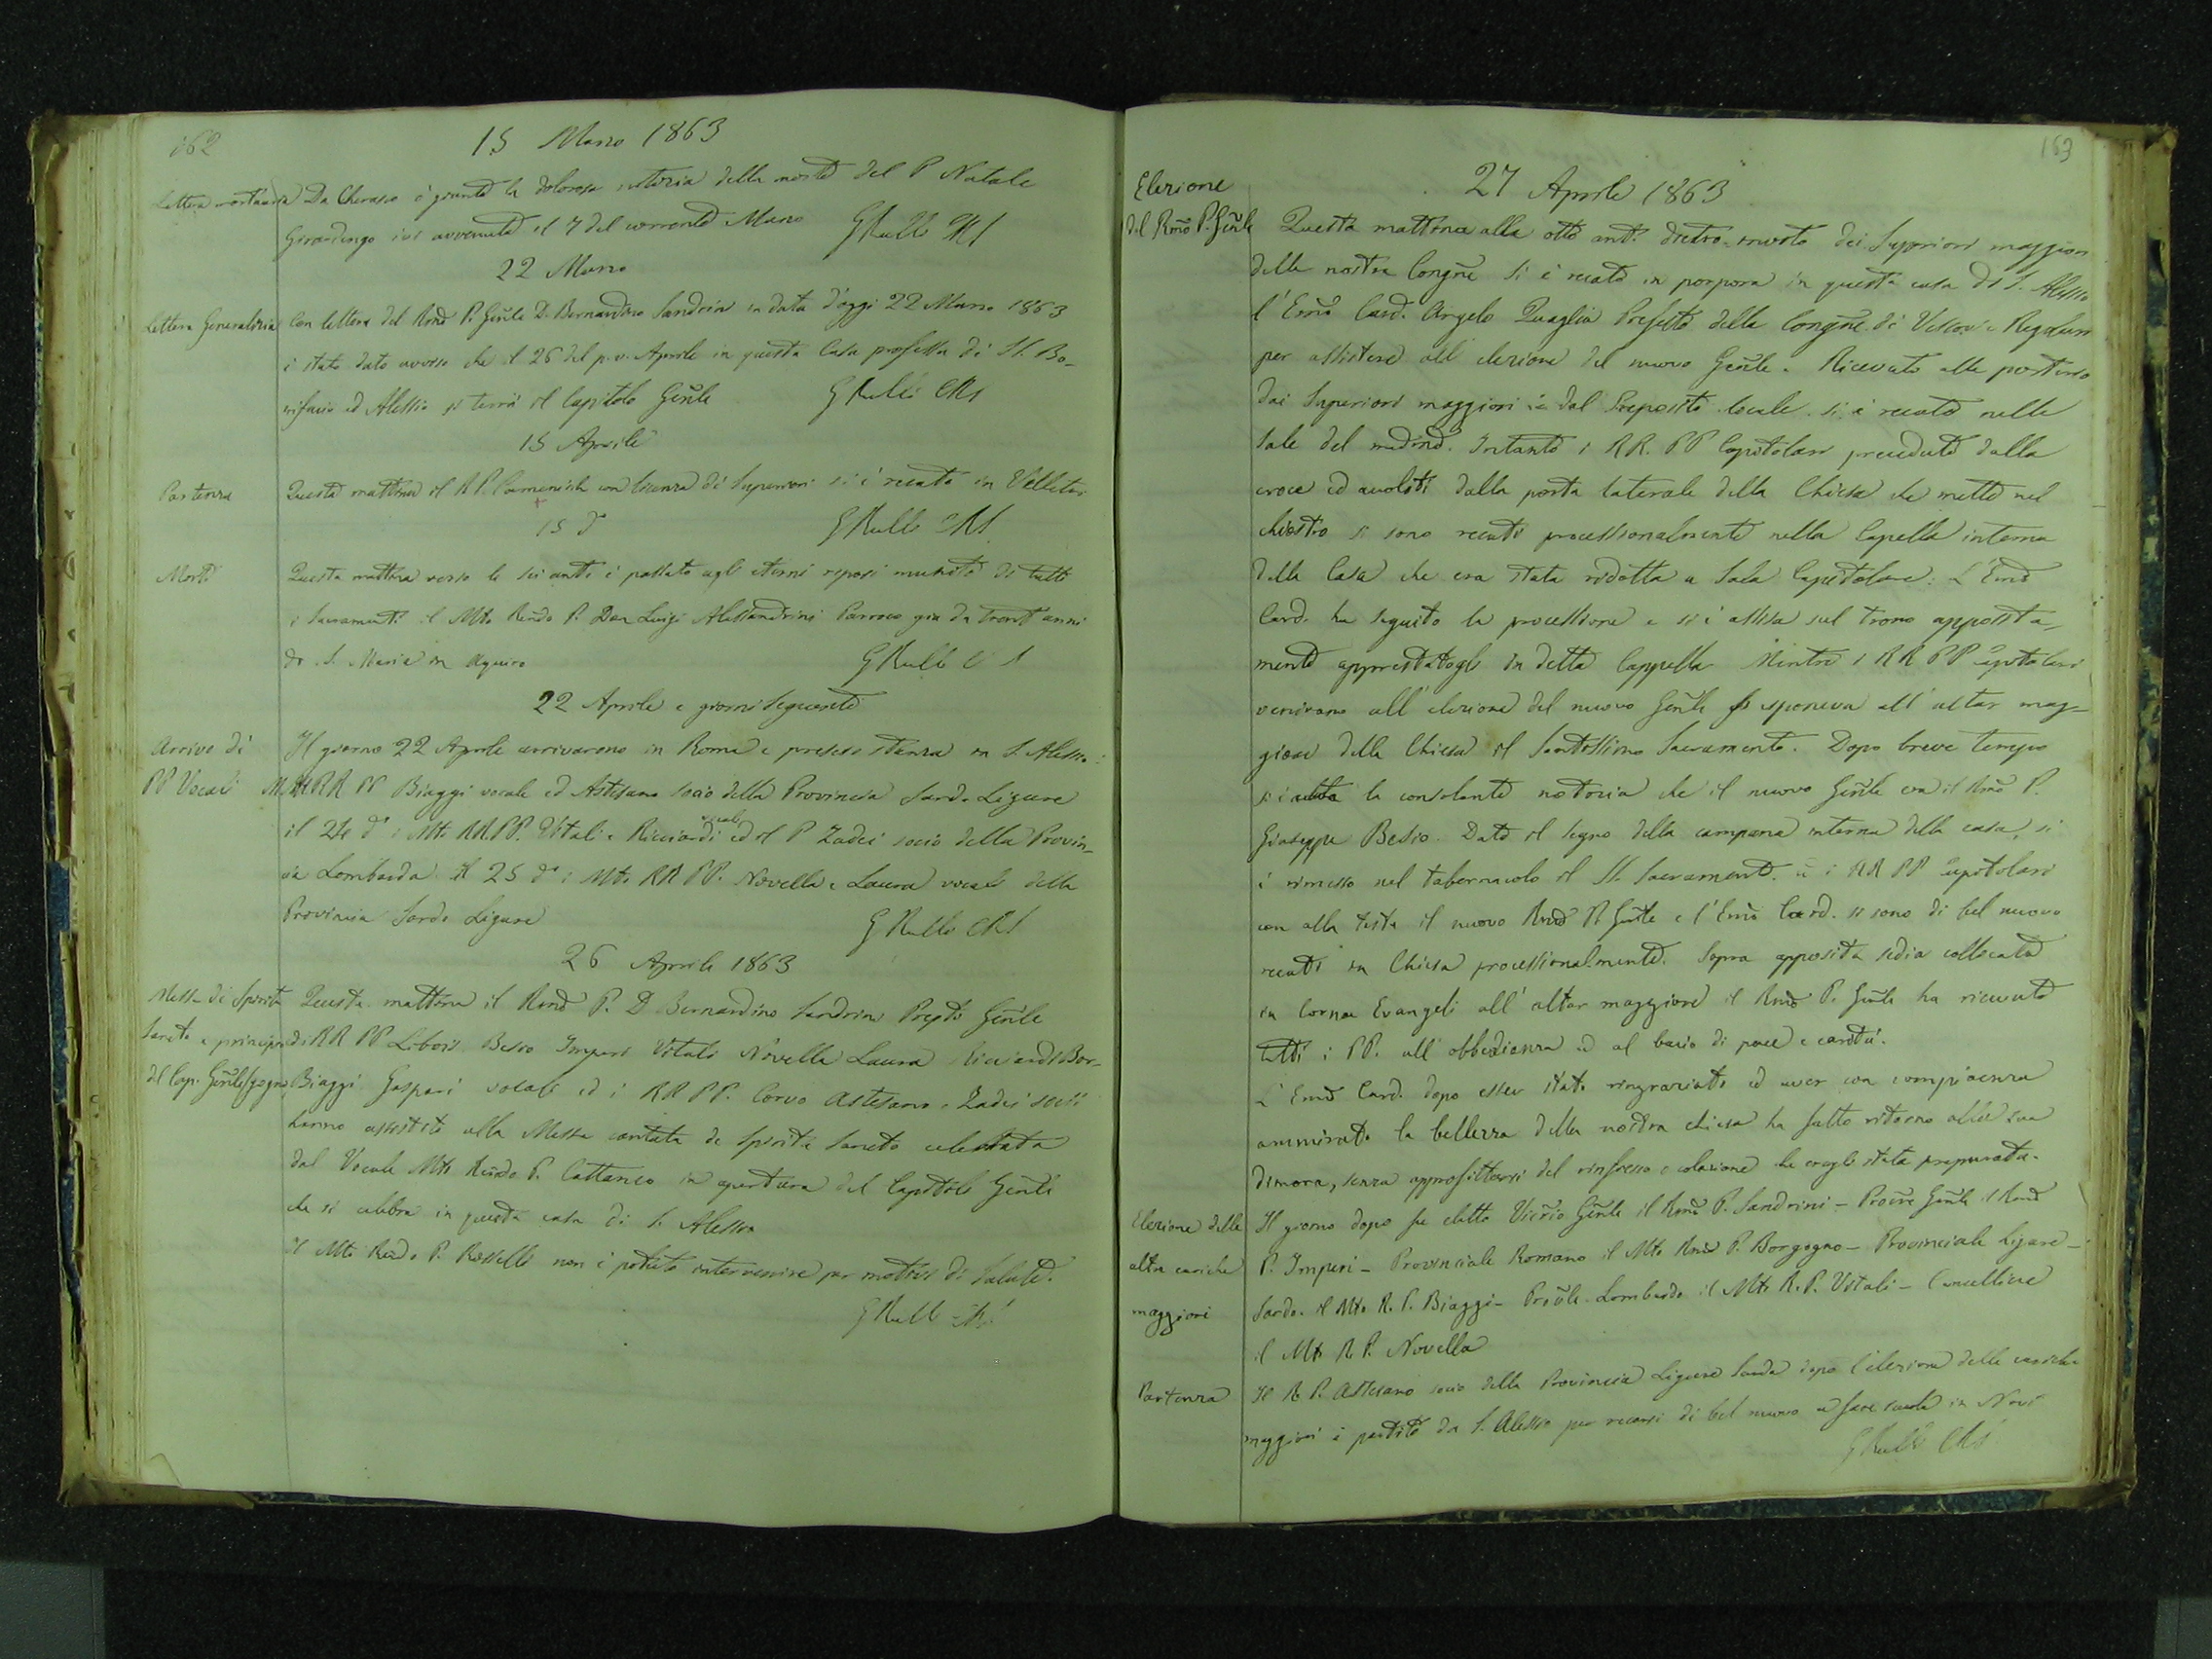 162
15 Marzo 1863
Lettera mortuaria Da Cherasco è giunta la dolorosa notizia della morte del P Natale
Girardengo ivi avvenuta il 7 del corrente Marzo G Rullo CRS
22 Marzo
Lettera Generalizia Con lettera del Rmo P. Gnle D. Bernardino Sandrini in data d'oggi 22 Marzo 1863
è stato dato avviso che il 26 del p.v. Aprile in questa Casa professa di SS. Bo-
nifacio ed Alessio si terrà il Capitolo Gnle G Rullo CRS
15 Aprile
Partenza Questa mattina il R P. con licenza di Superiori si è recato in Velletri
15 do G Rullo CRS
Morte Questa mattina verso le sei anti è passato agli eterni riposi munito di tutti
i Sacramenti il Mto Rendo P. Don Luigi Alessandrini Parroco già da trent'anni
di S. Maria in Aquiro G Rullo C S
22 Aprile e giorni seguenti
Arrivo di Il giorno 22 Aprile arrivarono in Roma e presero stanza in S. Alessio i
PP Vocali M. RR PP Biaggi vocale ed Astesano socio della Provincia Sardo Ligure
il 24 do i Mti RR.PP. Vitali e Ricciardi vocali ed il P Zadei socio della Provin-
cia Lombarda Il 25 do i Mti RR PP. Novella e Laura vocali della
Provincia Sardo Ligure G Rullo CRS
26 Aprile 1863
Messa di Spirito Questa mattina il Rmo P. D Bernardino Sandrini Prepto Gnle
Santo e principio di RR PP Libois Besio Imperi Vitali Novella Laura Ricciardi Bor-
del Cap. Gnle gogno Biaggi Gaspari vocali ed i RR PP. Corvo Astesano e Zadei socii
hanno assistito alla Messa cantata de Spiritu Sancto celebrata
dal Vocale Mto Rendo P. Cattaneo in apertura del Capitolo Gnle
che si celebra in questa casa di S. Alessio
Il Mto Rendo P. Rosselli non è potuto intervenire per motivi di salute.
G Rullo CRS
163
27 Aprile 1863
Elezione
del Rmo P. Gnle Questa mattina alle otto ant. dietro invito dei Superiori maggiori
della nostra Congne si è recato in porpora in questa casa di S. Alessio
l'Emo Card. Angelo Quaglia Prefetto della Congne di Vescovi e Regolari
per assistere all'elezione del nuovo Gnle. Ricevuto alla porteria
dai Superiori maggiori e dal Preposito locale si è recato nelle
sale del medmo. Intanto i RR. PP Capitolari preceduti dalla
croce ed accoliti dalla porta laterale della Chiesa che mette nel
chiostro si sono recati processionalmente nella Capella interna
della Casa che era stata ridotta a Sala Capitolare: L'Emo
Card. ha seguito la processione e si è assiso sul trono apposita-
mente apprestatogli in detta Cappella Mentre i RR PP Capitolari
venivano all'elezione del nuovo Gnle si esponeva all'altar mag-
giore della Chiesa il Santissimo Sacramento. Dopo breve tempo
si è la consolante notizia che il nuovo Gnle era il Rmo P.
Giuseppe Besio. Dato il segno della campana interna della casa, si
è rimesso nel tabernacolo il SS. Sacramento. e i RR PP Capitolari
con alla testa il nuovo Rmo P. Gnle e l'Emo Card. si sono di bel nuovo
recati in Chiesa processionalmente. Sopra apposita sedia collocata
in Cornu Evangeli all'altar maggiore il Rmo P. Gnle ha ricevuto
tutti i PP. all'obbedienza ed al bacio di pace e carità.
L'Emo Card. dopo esser stato ringraziato ed aver con compiacenza
ammirato la bellezza della nostra chiesa ha fatto ritorno alla sua
dimora, senza approfittarsi del rinfresco e colazione che eragli stata preparata.
Elezione delle Il giorno dopo fu eletto Vicrio Gnle il Rmo P. Sandrini - Procre Gnle il Rmo
altre cariche P. Imperi - Provinciale Romano il Mto Rmo P. Borgogno - Provinciale Ligure-
maggiori Sardo. il Mto R. P. Biaggi - Provle Lombardo il Mto R. P. Vitali - Cancelliere
il Mto R P. Novella
Partenza Il R P. Astesano socio della Provincia Ligure Sarda dopo l'elezione delle cariche
maggiori è partito da S. Alessio per recarsi di bel nuovo a fare scuola in Novi
G Rullo CRS